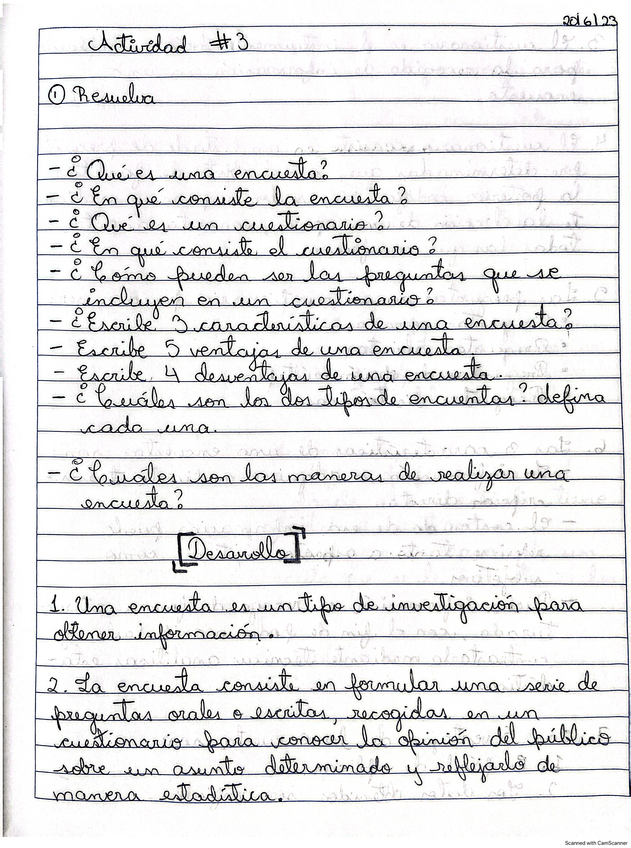 20/6/23
Actividad #3
① Resuelva
- ¿Qué es una encuesta?
- ¿En qué consiste la encuesta?
- ¿Qué es un cuestionario?
- ¿En qué consiste el cuestionario?
- ¿Cómo pueden ser las preguntas que se
incluyen en un cuestionario?
- ¿Escribe 3 características de una encuesta?
- Escribe 5 ventajas de una encuesta
- Escribe 4 desventajas de una encuesta.
- ¿Cuáles son los dos tipos de encuentas? defina
cada una.
- ¿Cuáles son las maneras de realizar una
encuesta?
[Desarollo]
1. Una encuesta es un tipo de investigación para
obtener información.
2. La encuesta consiste en formular una serie de
preguntas orales o escritas, recogidas en un
cuestionario para conocer la opinión del público
sobre un asunto determinado y reflejarlo de
manera estadística.
Scanned with CamScanner